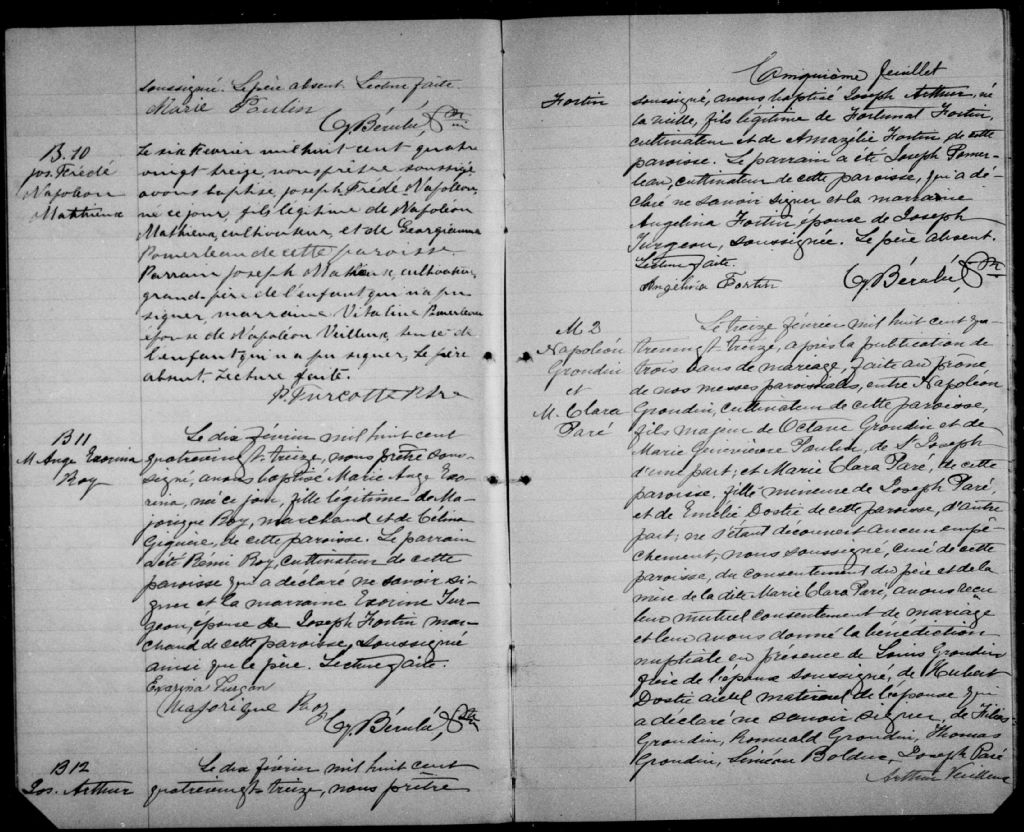 soussigné. Le père absent. Lecture faite.
Marie Poulin
G Bérubé, Ptre
B.10
Jos. Férédé
Napoléon
Mathieux
Le six Février mil huit cent quatre
vingt treize, nous prêtre soussigé
avons baptisé, Joseph Férédé Napoléon,
né ce jour, fils légitime de Napoléon
Mathieux, cultivateur, et de Georgianna
Pomerleau de cette paroisse.
Parrain Joseph Mathieux, cultivateur,
grand-père de l'enfant qui n'a pu
signer, marraine Vitaline Pomerleau
épouse de Napoléon Veilleux, tante de
l'enfant qui n'a pu signer, Le père
absent. Lecture faite.
P. Turcotte Ptre
B11
M Ange Exorina
Roy
Le dix février mil huit cent
quatrevingt treize, nous prêtre sous-
signé, avons baptisé Marie Ange Exo-
rina, née ce jour, fille legitime de Ma-
jorique Roy, marchand et de Célina
Giguère, de cette paroisse. Le parrain
a été Rémi Roy, cultivateur de cette
paroisse qui a déclaré ne savoir si-
gner et la marraine Exorine Tur-
geon, épouse de Joseph Fortin mar-
chand de cette paroisse, soussigné
ainsi que le père. Lecture faite.
Exarina Turgon
Majorique Roy
G. Bérubé, Ptre
B12
Jos. Arthur
Le dix février mil huit cent
quatrevingt treize, nous prêtre
Cinquième feuillet
Fortin
soussigné, avons baptisé Joseph Arthur, né
la veille, fils légitime de Fortunat Fortin,
cultivateur et de Amazélie Fortin de cette
paroisse. Le parrain a été Joseph Pomer-
leau, cultivateur de cette paroisse, qui a dé-
claré ne savoir signer et la marraine
Angelina Fortin, épouse de Joseph
Turgeon, soussignée. Le père absent.
Lecture faite.
Angelinia Fortin
G Bérubé, Ptre
M 2
Napoléon
Grondin
et
M. Clara
Paré
Le treize février mil huit cent qua-
trevingt-treize, après la publication de
trois bans de mariage, faite au prône
de nos messes paroissiales, entre Napoléon
Grondin, cultivateur de cette paroisse,
fils majeur de Octave Grondin et de
Marie Geneviève Poulin, de St Joseph
d'une part; et Marie Clara Paré, de cette
paroisse, fille mineure de Joseph Paré
et de Emélie Dostie de cette paroisse, d'autre
part; ne s'étant découvert aucun empê-
chement, nous soussigné, curé de cette
paroisse, du consentement du père et de la
mère de la dite Marie Clara Paré, avons reçu
leur mutuel consentement de mariage
et leur avons donné la bénédiction
nuptiale en présence de Louis Grondin
frère de l'époux soussigné, de Hubert
Dostie aieul maternel de l'épouse qui
a déclaré ne savoir signer, de
Grondin, Romuald Grondin, Thomas
Grondin, Siméon Bolduc, Joseph Paré
Arthur Veilleux